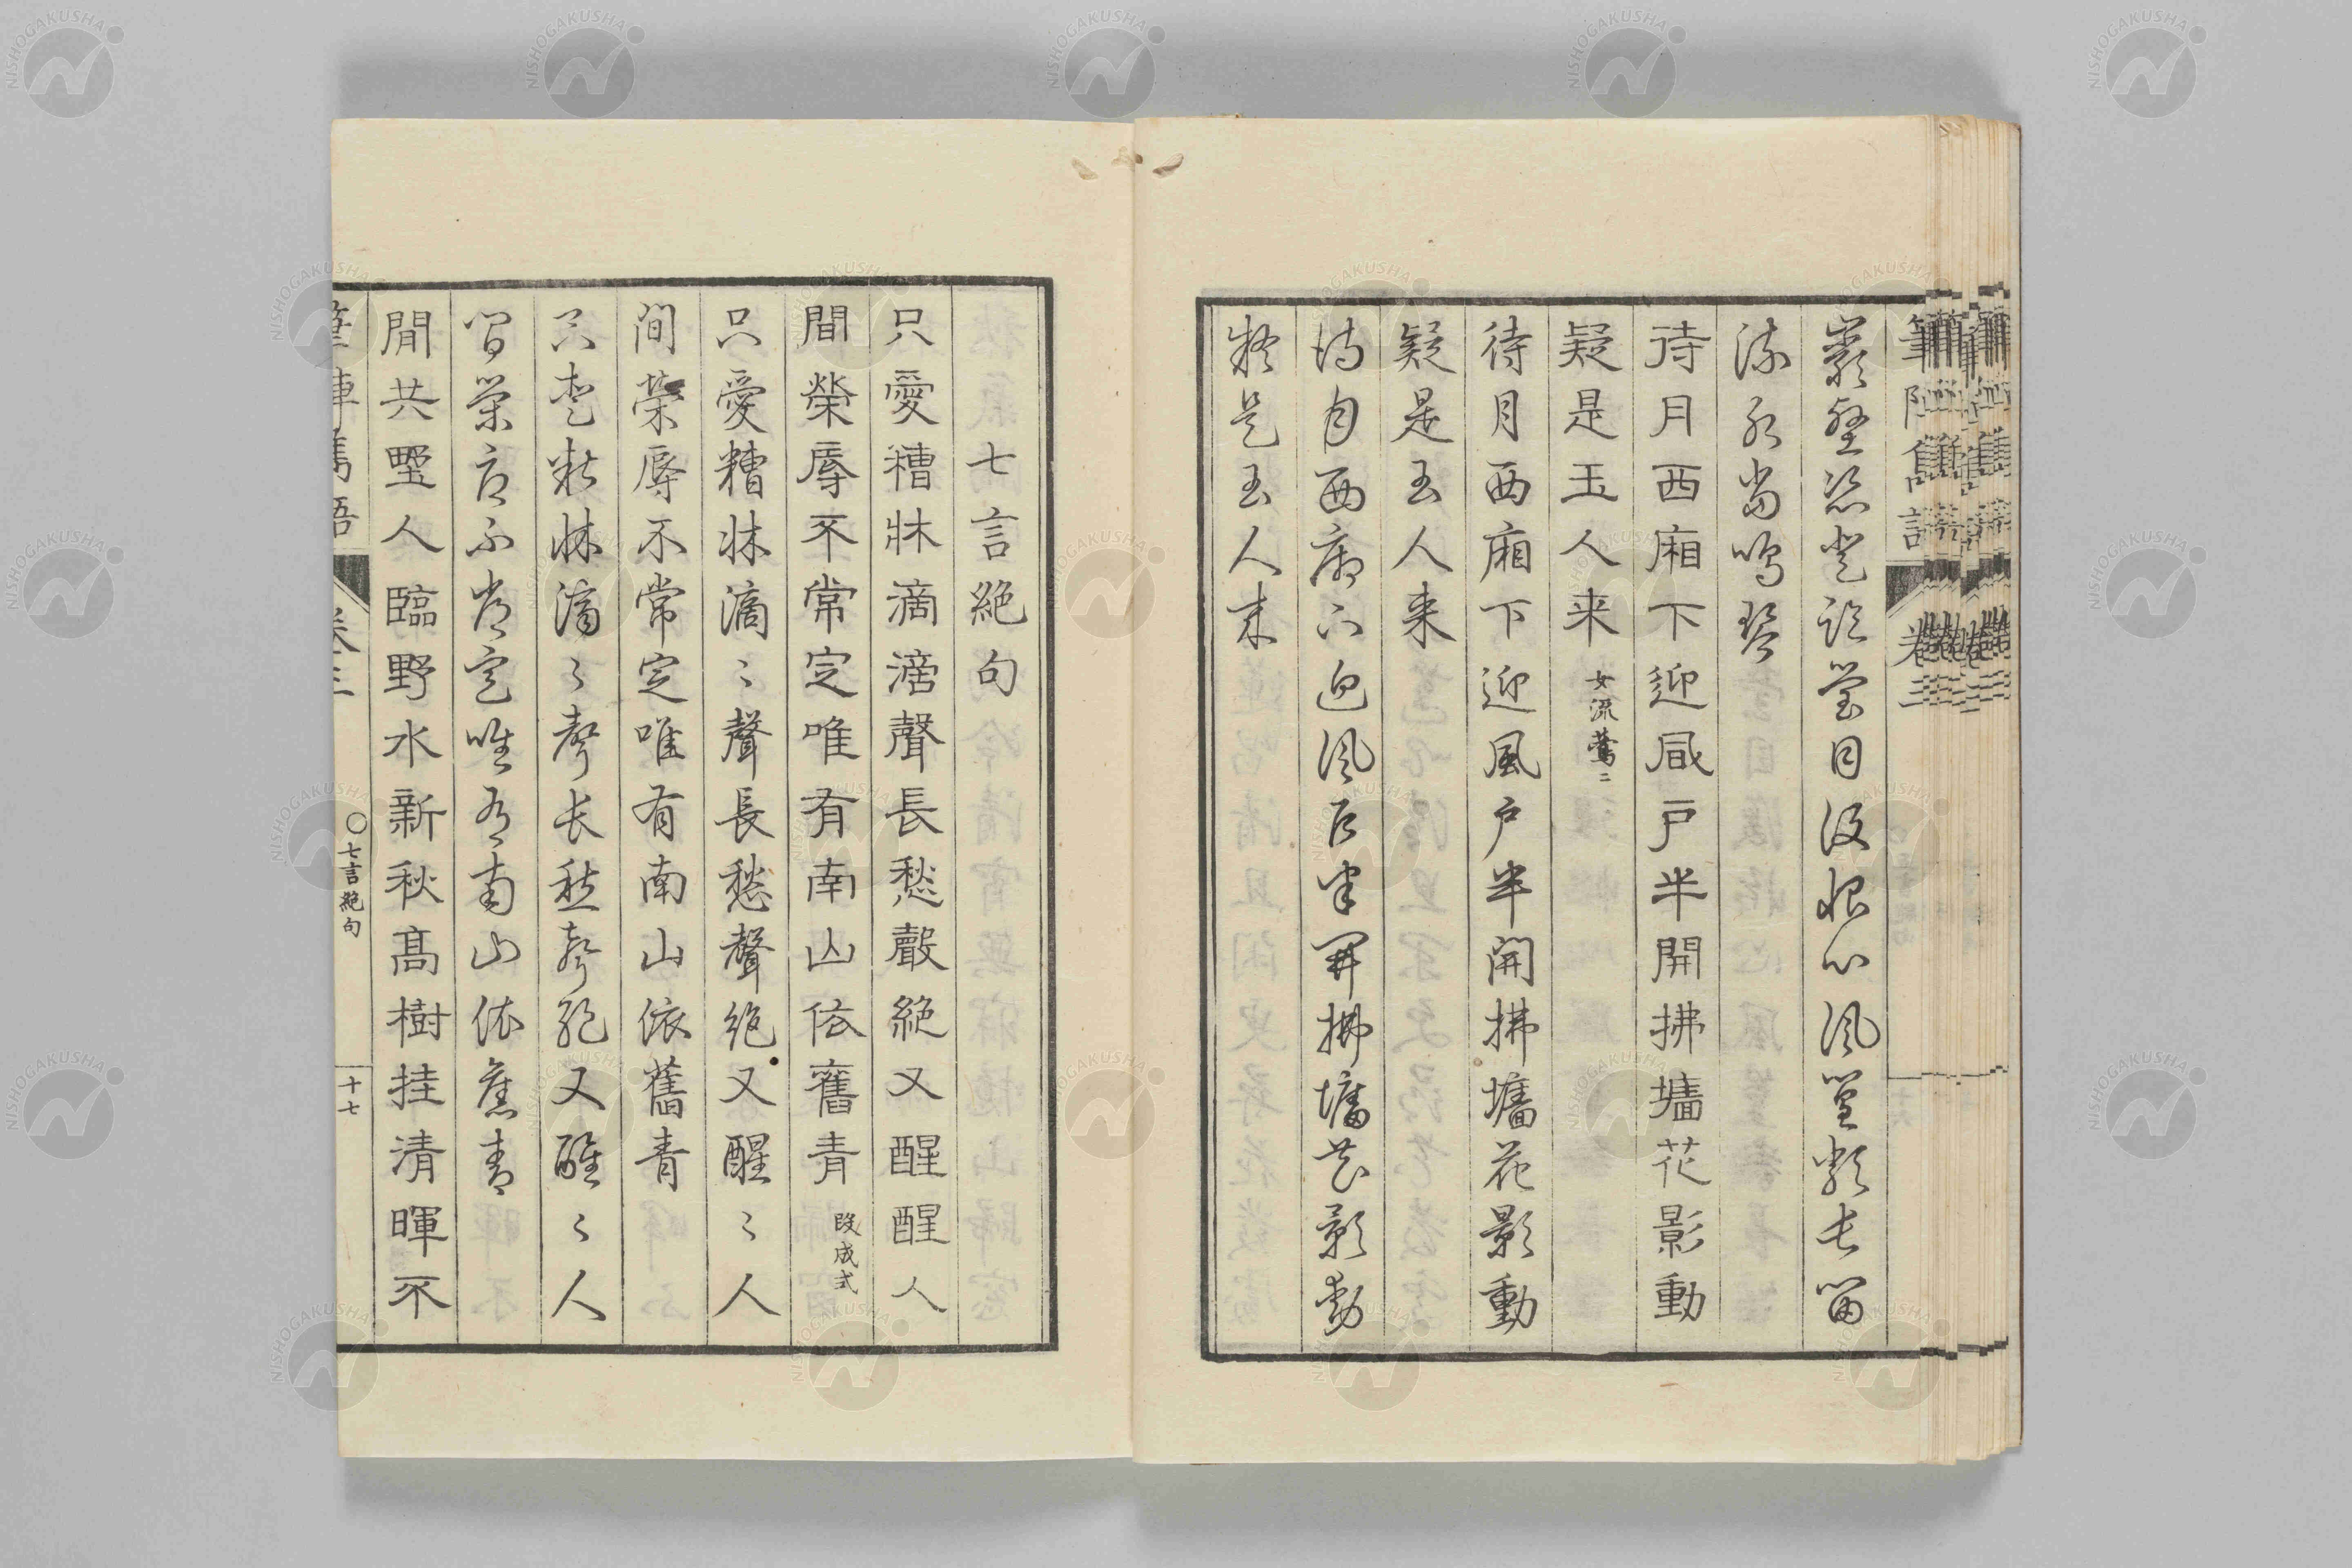 筆陣雋語 卷三
巖壑恣登臨瑩目復怡心風篁類長笛
流水當鳴琴
待月西廂下迎風戸半開拂墻花影動
疑是玉人来 女流鶯二
待月西廂下迎風戸半開拂墻花影動
疑是玉人来
待月西廂下迎風戸半開拂墻花影動
疑是玉人来
七言絶句
只愛糟牀滴滴聲長愁聲絶又醒醒人
間榮辱不常定唯有南山依舊青 段成式
只愛糟牀滴〻聲長愁聲絶又醒〻人
間榮辱不常定唯有南山依舊青
只愛糟牀滴〻聲长愁聲絶又醒〻人
間榮辱不常定唯有南山依舊青
閒共人臨野水新秋高樹挂清暉不
筆陣雋語 卷三 〇七言絶句 十七